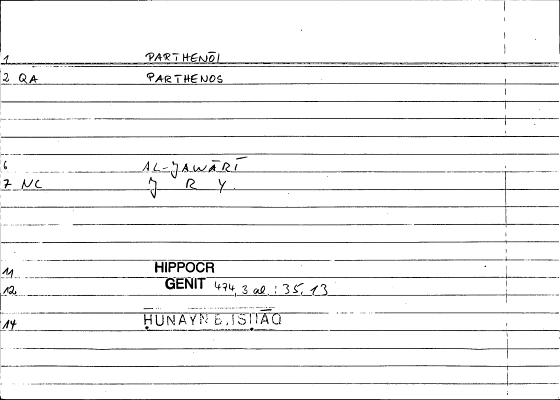 1 PARTHENOI
2 QA PARTHENOS
6 AL-JAWĀRĪ
7 NC J R Y
11 HIPPOCR
12 GENIT 474, 3 al.: 35, 13
14 ḤUNAYN B. ISḤĀQ